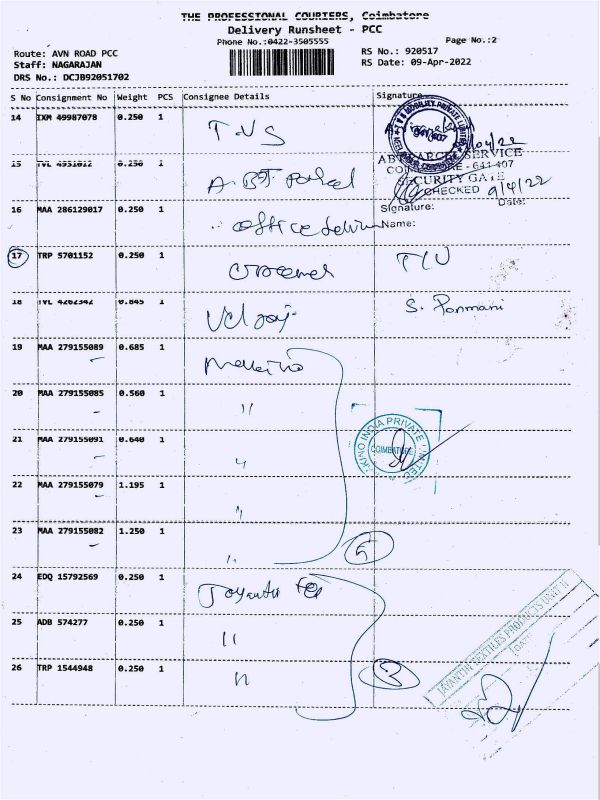 THE PROFESSIONAL COURIERS, Coimbatore
Delivery Runsheet - PCC
Phone No.:0422-3505555
Page No.:2
Route: AVN ROAD PCC
RS No.: 920517
Staff: NAGARAJAN
RS Date: 09-Apr-2022
DRS No.: DCJB92051702
S No Consignment No Weight PCS Consignee Details Signature
14 IXM 49987078 0.250 1 TVS
SECURITY GATE
CHECKED 9/4/22
15 TVL 4951612 0.250 1
Signature: Date:
16 MAA 286129017 0.250 1 office
Name:
17 TRP 5701152 0.250 1
18 TVL 4262342 0.845 1 S. Ponmani
19 MAA 279155089 0.685 1
20 MAA 279155085 0.560 1 "
21 MAA 279155091 0.640 1 "
INDIA PRIVATE
COIMBATORE
22 MAA 279155079 1.195 1 "
23 MAA 279155082 1.250 1 " 5
24 EDQ 15792569 0.250 1 Jayanthi Tex
25 ADB 574277 0.250 1 "
26 TRP 1544948 0.250 1 " 3
JAYANTHI TEXTILES PRODUCTS UNIT II